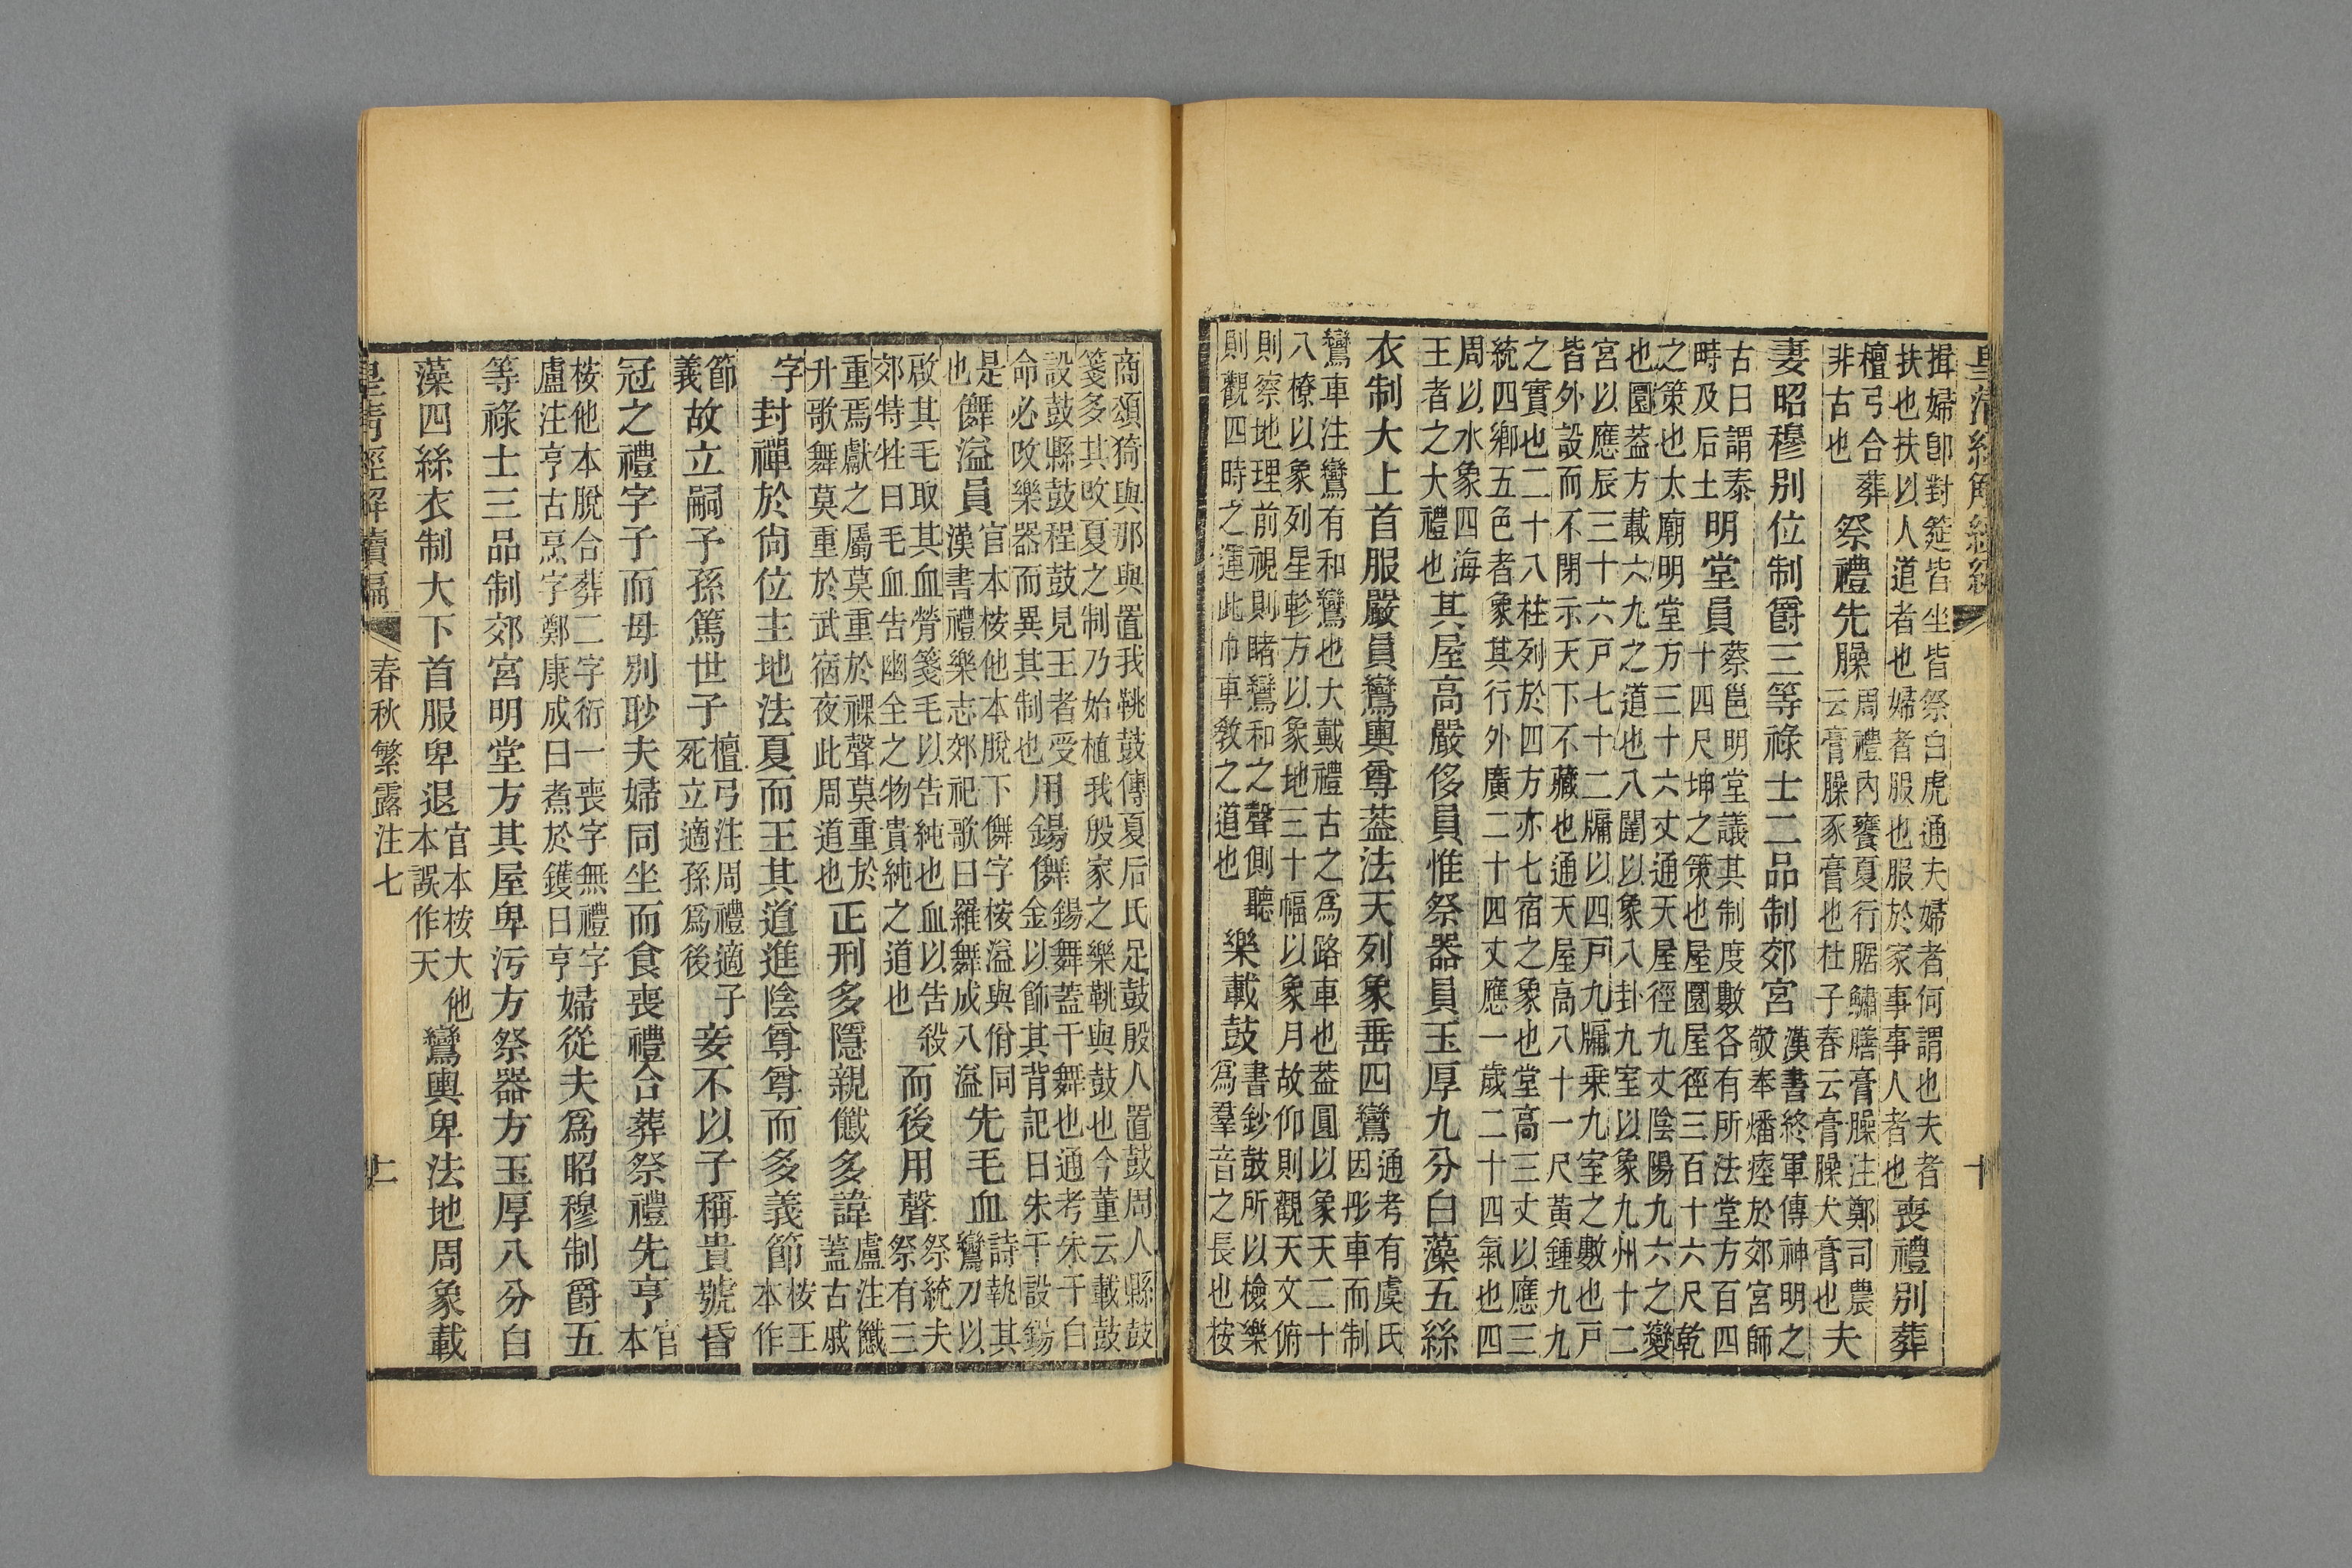 揖婦卽對筵皆坐皆祭白虎通夫婦者何謂也夫者
扶也扶以人道者也婦者服也服於家事事人者也喪禮別葬
檀弓合葬
非古也祭禮先臊
周禮內饔夏行腒鱐膳膏臊注鄭司農
云膏臊豕膏也杜子春云膏臊犬膏也夫
妻昭穆別位制爵三等祿士二品制郊宮
漢書終軍傳神明之
敬奉燔瘞於郊宮師
古曰謂泰
時及后土明堂員
蔡邕明堂議其制度數各有所法堂方百四
十四尺坤之策也屋圜屋徑三百十六尺乾
之策也太廟明堂方三十六丈通天屋徑九丈陰陽九六之變
也圜蓋方載六九之道也八闥以象八卦九室以象九州十二
宮以應辰三十六戸七十二牖以四戸九牖乗九室之數也戸
皆外設而不閉示天下不藏也通天屋高八十一尺黃鍾九九
之實也二十八柱列於四方亦七宿之象也堂高三丈以應三
統四鄉五色者象其行外廣二十四丈應一歲二十四氣也四
周以水象四海
王者之大禮也其屋高嚴侈員惟祭器員玉厚九分白藻五絲
衣制大上首服嚴員鸞輿尊葢法天列象垂四鸞
通考有虞氏
因彤車而制
鸞車注鸞有和鸞也大戴禮古之爲路車也葢圓以象天二十
八橑以象列星軫方以象地三十幅以象月故仰則觀天文俯
則察地理前視則睹鸞和之聲側聽
則觀四時之運此巾車敎之道也樂載鼓
書鈔鼓所以檢樂
爲羣音之長也桉
商頌猗與那與置我鞉鼓傳夏后氏足鼓殷人置鼓周人縣鼓
箋多其攺夏之制乃始植我殷家之樂鞉與鼓也今董云載鼓
設鼓縣鼓程鼓見王者受
命必攺樂器而異其制也用錫儛
錫舞蓋干舞也通考朱干白
金以飾其背記曰朱干設錫
是
也儛溢員
官本桉他本脫下儛字桉溢與佾同
漢書禮樂志郊祀歌曰羅舞成八溢先毛血
詩執其
鸞刀以
啟其毛取其血膋箋毛以告純也血以告殺
郊特牲曰毛血告幽全之物貴純之道也而後用聲
祭統夫
祭有三
重焉獻之屬莫重於祼聲莫重於
升歌舞莫重於武宿夜此周道也正刑多隱親㦰多諱
盧注㦰
蓋古戚
字封禪於尙位主地法夏而王其道進陰尊尊而多義節
桉王
本作
節
義故立嗣予孫篤世子
檀弓注周禮適子
死立適孫爲後妾不以子稱貴號昏
冠之禮字子而母別眇夫婦同坐而食喪禮合葬祭禮先亨
官
本
桉他本脫合葬二字衍一喪字無禮字
盧注亨古烹字鄭康成曰煮於鑊曰亨婦從夫爲昭穆制爵五
等祿士三品制郊宮明堂方其屋卑污方祭器方玉厚八分白
藻四絲衣制大下首服卑退
官本桉大他
本誤作天鸞輿卑法地周象載
春秋繁露注七